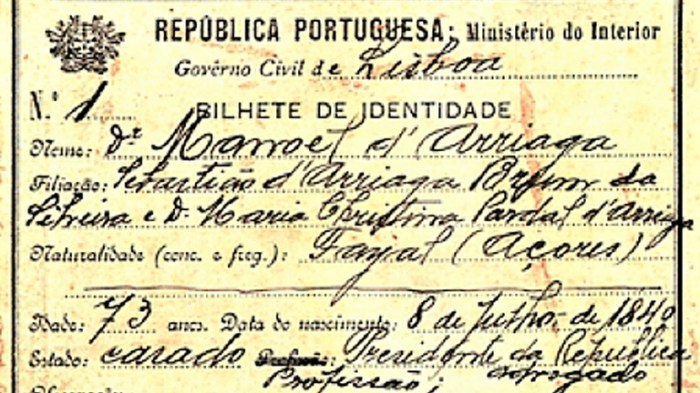 REPÚBLICA PORTUGUESA; Ministério do Interior
Govêrno Civil de Lisboa
N.º 1
BILHETE DE IDENTIDADE
Nome: Dr. Manoel d'Arriaga
Filiação: Sebastião d'Arriaga Brum da
Silveira e D. Maria Christina Pardal d'Arriaga
Naturalidade (conc. e freg.): Fayal (Açores)
Idade: 73 anos. Data do nascimento: 8 de Julho de 1840
Estado: casado Profissão: Presidente da Republica
Profissão: advogado